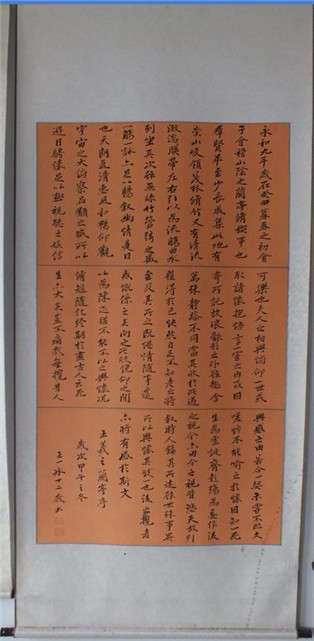 永和九年歲在癸丑暮春之初會
于會稽山陰之蘭亭脩稧事也
群賢畢至少長咸集此地有
崇山峻領茂林脩竹又有清流
激湍暎帶左右引以為流觴曲水
列坐其次雖無絲竹管弦之盛
一觴一詠亦足以暢敘幽情是日
也天朗氣清惠風和暢仰觀
宇宙之大俯察品類之盛所以
遊目騁懷足以極視聽之娛信
可樂也夫人之相與俯仰一世或
取諸懷抱悟言一室之內或因
寄所託放浪形骸之外雖趣舍
萬殊靜躁不同當其欣於所遇
暫得於己快然自足不知老之將
至及其所之既惓情隨事遷
感慨係之矣向之所欣俛仰之間
以為陳迹猶不能不以之興懷況
脩短隨化終期於盡古人云死
生亦大矣豈不痛哉每攬昔人
興感之由若合一契未嘗不臨文
嗟悼不能喻之於懷固知一死
生為虛誕齊彭殤為妄作後
之視今亦由今之視昔悲夫故列
敘時人錄其所述雖世殊事異
所以興懷其致一也後之覽者
亦將有感於斯文
王羲之蘭亭序
歲次甲午之冬
王一 十二歲書